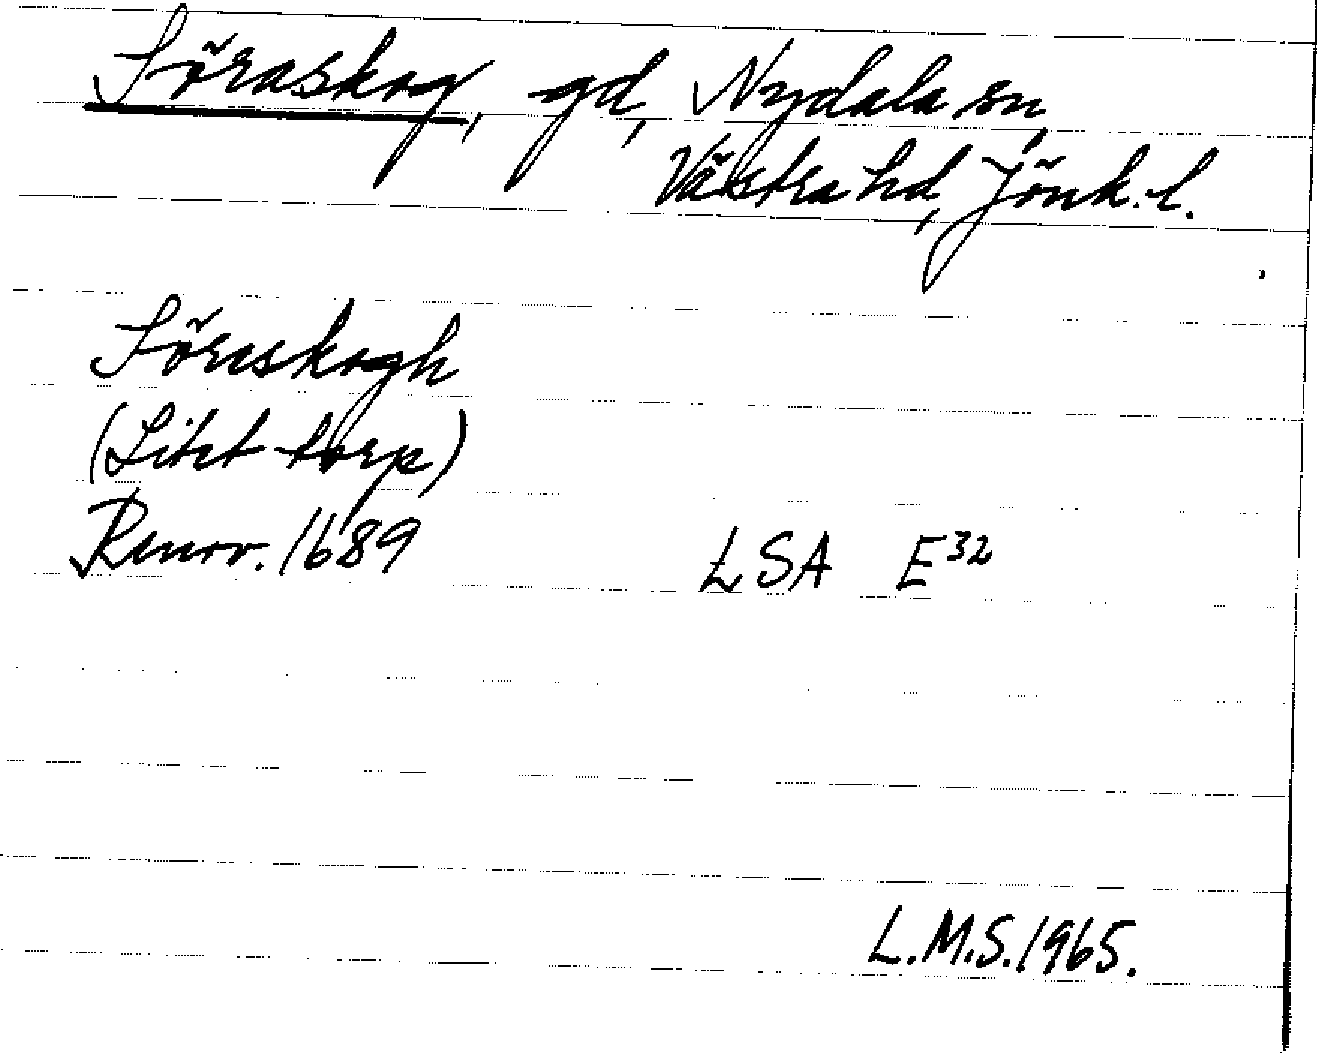 Söraskog, gd, Nydala sn,
Västra hd, Jönk. l.
Söreskogh
(Litet torp)
Renov. 1689 LSA E32
L.M.S. 1965.